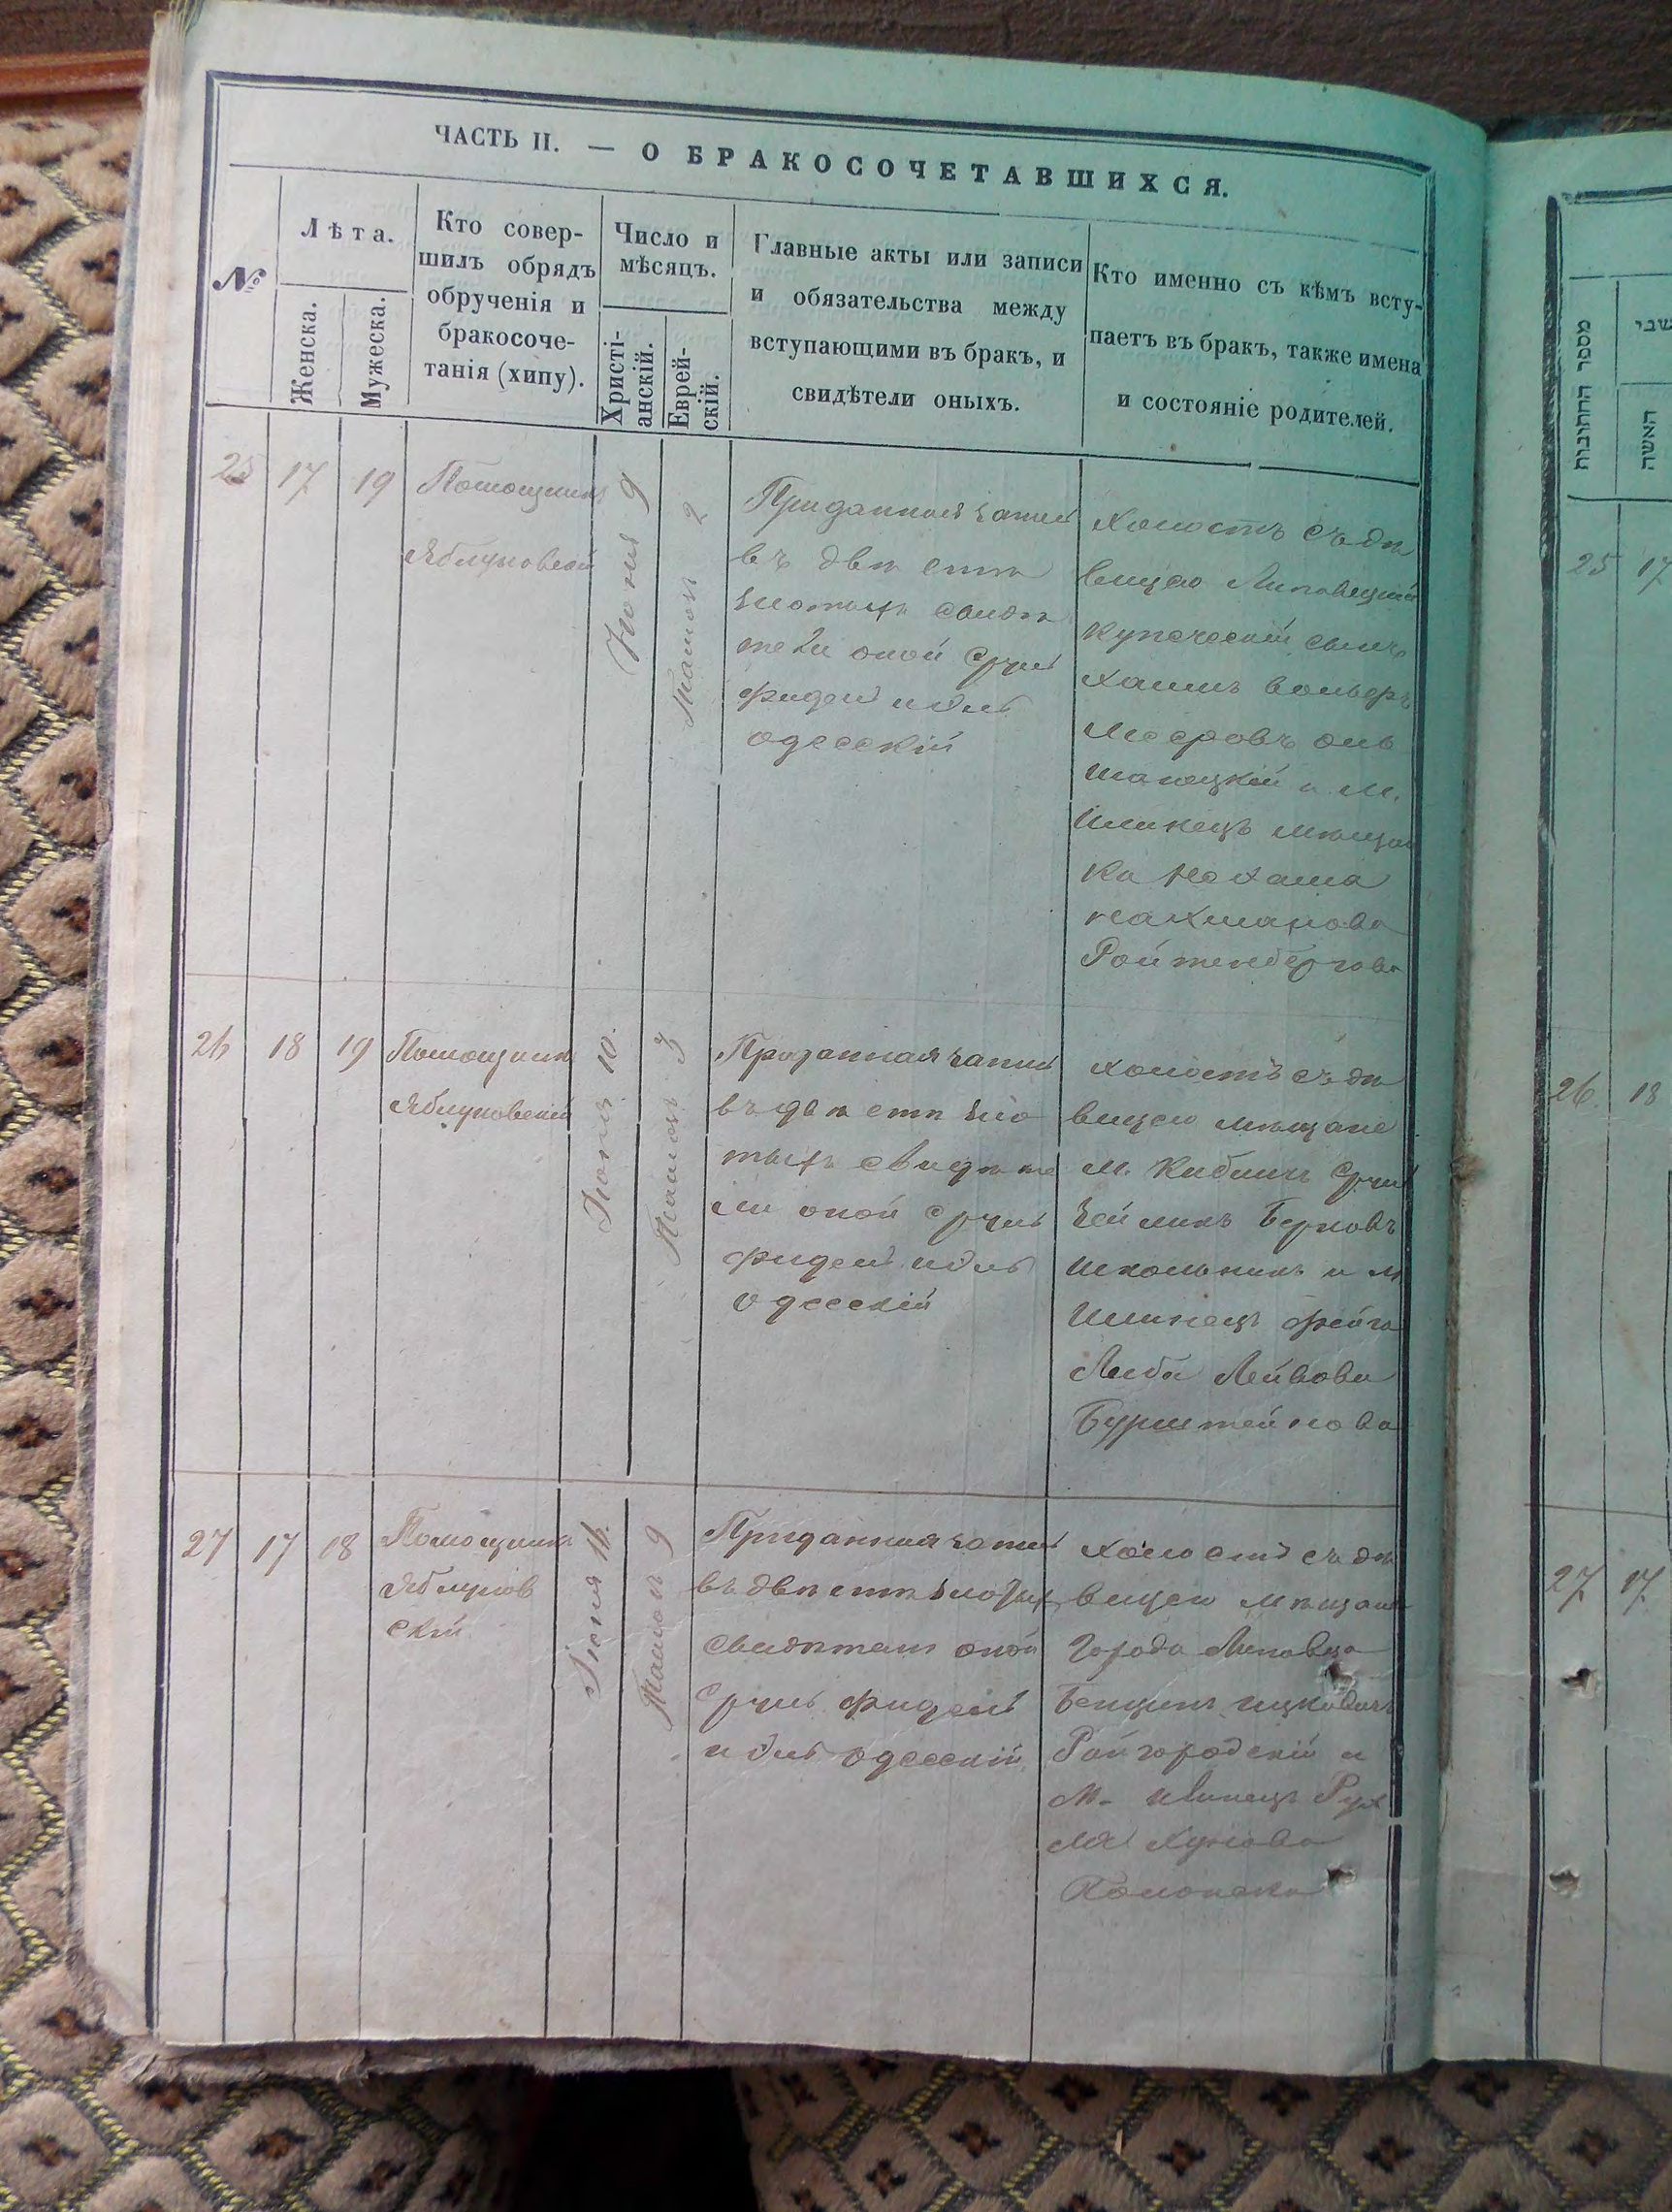 ЧАСТЬ II. — О БРАКОСОЧЕТАВШИХСЯ.
№
Лѣта.
Женска.
Мужеска.
Кто совер-
шилъ обрядъ
обрученія и
бракосоче-
танія (хипу).
Число и
мѣсяцъ.
Христі-
анскій.
Еврей-
скій.
Главные акты или записи
и обязательства между
вступающими въ бракъ, и
свидѣтели оныхъ.
Кто именно съ кѣмъ всту-
паетъ въ бракъ, также имена
и состояніе родителей.
25
17
19
Помощникъ
Яблуновскій
Іюня 9
Тамозъ 2
Приданная запись
въ двѣ стѣ
злотыхъ свидѣ
тели оной Сруль
Фидель и Дувидъ
одесскій
холостъ съ дѣ
вицею Липовецкій
купеческій сынъ
Хаимъ Вольфъ
Мееровъ
и М.
Илинецъ мѣщан
ка Нехама
Нахманова
Ройтенбергова
26
18
19
Помощникъ
Яблуновскій
Іюня 10.
Тамозъ 3
Приданная запись
въ двѣ стѣ зло
тыхъ свидѣте
ли оной Сруль
одесскій
холостъ съ дѣ
вицею мѣщане
м. Кибличъ Сруль
Зейликъ Берковъ
Школьникъ и м
Илинецъ Фейга
Либа Лейбова
Бурштейнова
27
17
18
Помощникъ
Яблунов
скій
Іюня 16.
Тамозъ 9
Приданная запись
въ двѣ стѣ злотыхъ
свидѣтели оной
Сруль
одесскій
холостъ съ дѣ
вицею мѣщане
города Липовца
Бенционъ Ицковичъ
Райгородскій и
М. Илинецъ Рух
ля
מספר החתונות
האשה
25
17
26.
18
27
17